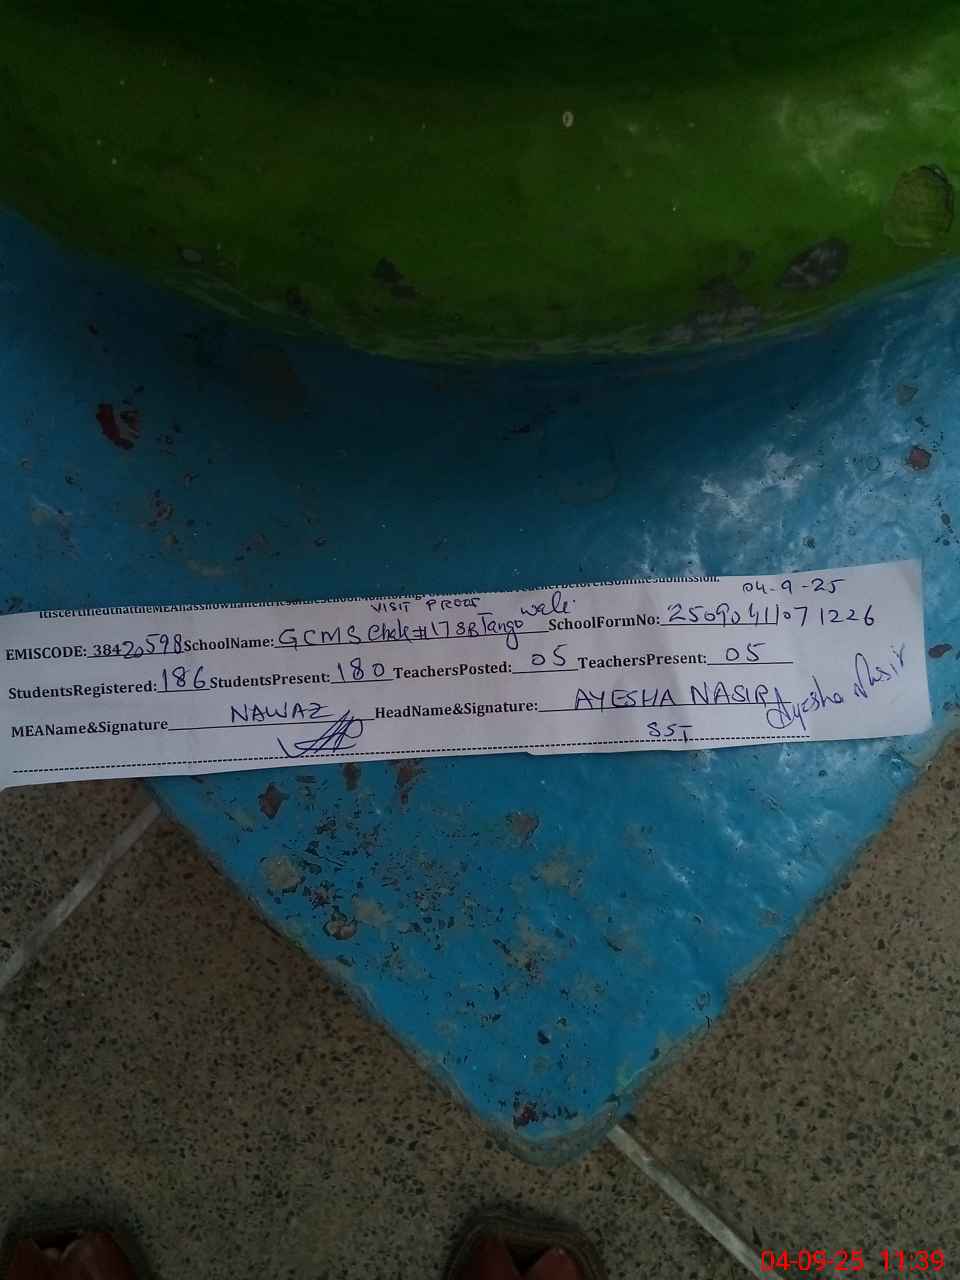 VISIT PROOF
04-9-25
EMISCODE: 38420598 SchoolName: GCMS Chak #17 SB Tango wali SchoolFormNo: 25090411071226
StudentsRegistered: 186 StudentsPresent: 180 TeachersPosted: 05 TeachersPresent: 05
MEAName&Signature NAWAZ HeadName&Signature: AYESHA NASIR Ayesha Nasir
SST
04-09-25 11:39